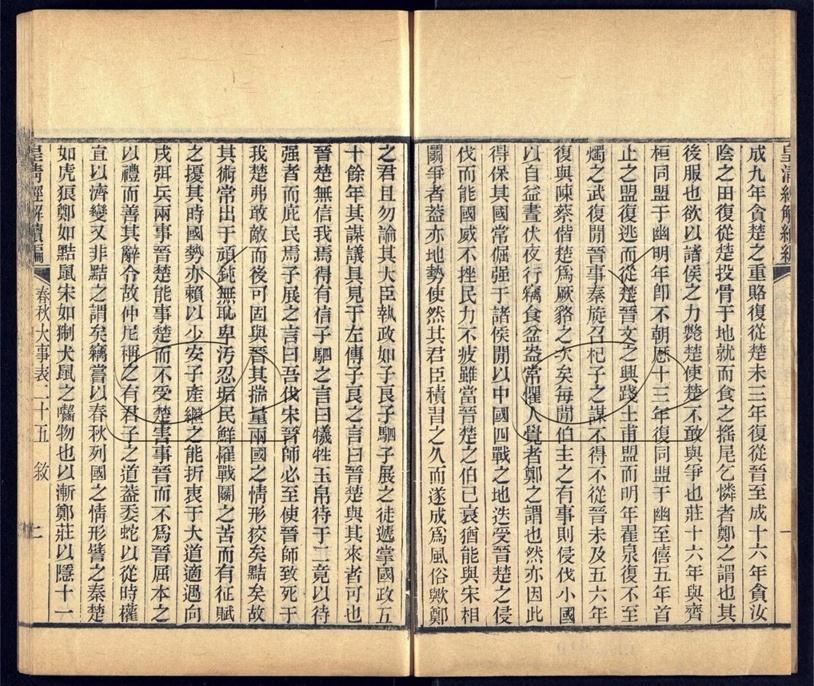 皇清經解續編
成九年貪楚之重賂復從楚未三年復從晉至成十六年貪汝
陰之田復從楚投骨于地就而食之搖尾乞憐者鄭之謂也其
後服也欲以諸侯之力斃楚使楚不敢與爭也莊十六年與齊
桓同盟于幽明年卽不朝厯十三年復同盟于幽至僖五年首
止之盟復逃而從楚晉文之興踐土甫盟而明年翟泉復不至
燭之武復閒晉事秦旋召杞子之謀不得不從晉未及五六年
復與陳蔡偕楚爲厥貉之次矣每閒伯主之有事則侵伐小國
以自益晝伏夜行竊食盆盎常懼人覺者鄭之謂也然亦因此
得保其國常倔强于諸侯閒以中國四戰之地迭受晉楚之侵
伐而能國威不挫民力不疲雖當晉楚之伯已衰猶能與宋相
鬭爭者蓋亦地勢使然其君臣積習之久而遂成爲風俗歟鄭
之君且勿論其大臣執政如子良子駟子展之徒遞掌國政五
十餘年其謀議具見于左傳子良之言曰晉楚與其來者可也
晉楚無信我焉得有信子駟之言曰犧牲玉帛待于二竟以待
强者而庇民焉子展之言曰吾伐宋晉師必至使晉師致死于
我楚弗敢敵而後可固與晉其揣量兩國之情形狡矣黠矣故
其術常出于頑鈍無恥卑污忍垢民鮮罹戰鬭之苦而有征賦
之擾其時國勢亦賴以少安子產繼之能折衷于大道適遇向
戌弭兵兩事晉楚能事楚而不受楚害事晉而不爲晉屈本之
以禮而善其辭令故仲尼稱之有君子之道蓋委蛇以從時權
宜以濟變又非黠之謂矣竊嘗以春秋列國之情形譬之秦楚
如虎狼鄭如黠鼠宋如猘犬鼠之囓物也以漸鄭莊以隱十一
皇清經解續編 春秋大事表二十五 敘 二